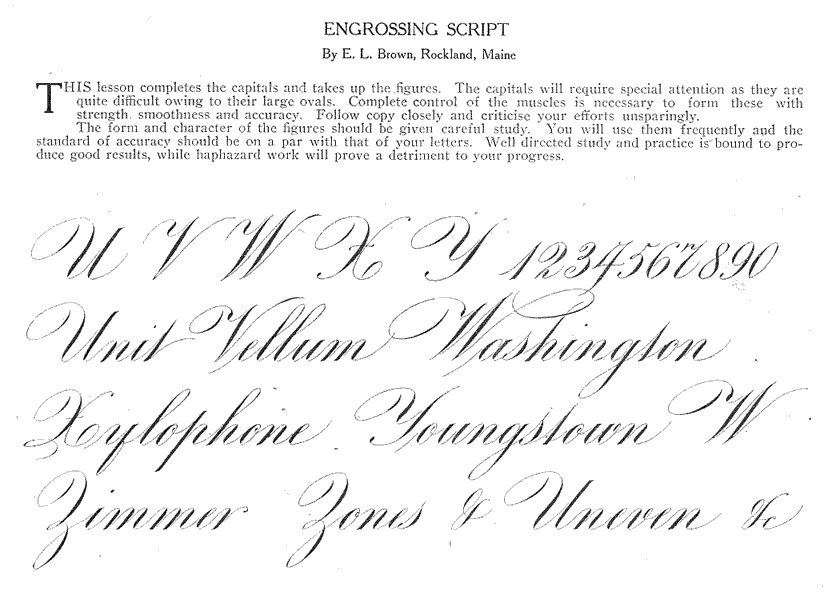 ENGROSSING SCRIPT
By E. L. Brown, Rockland, Maine
THIS lesson completes the capitals and takes up the figures. The capitals will require special attention as they are
quite difficult owing to their large ovals. Complete control of the muscles is necessary to form these with
strength smoothness and accuracy. Follow copy closely and criticise your efforts unsparingly.
The form and character of the figures should be given careful study. You will use them frequently and the
standard of accuracy should be on a par with that of your letters. Well directed study and practice is bound to pro-
duce good results, while haphazard work will prove a detriment to your progress.
U V W X Y 1234567890
Unit Vellum Washington
Xylophone Youngstown W
Zimmer Zones & Uneven &c